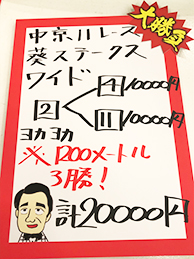 大勝負
中京11レース
葵ステークス
ワイド
4 10000円
2
11 10000円
ヨカヨカ
※1200メートル
3勝!
計20000円